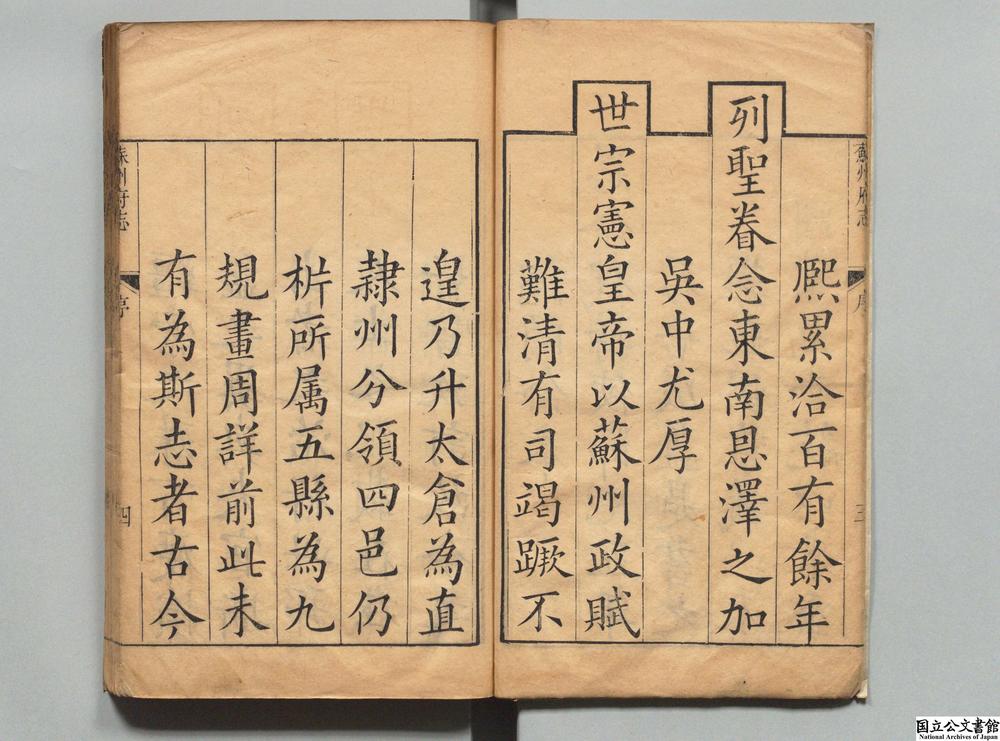 蘇州府志
序
三
熙累洽百有餘年
列聖眷念東南恩澤之加
吳中尤厚
世宗憲皇帝以蘇州政賦
難清有司竭蹶不
遑乃升太倉為直
隸州分領四邑仍
析所属五縣為九
規畫周詳前此未
有為斯志者古今
蘇州府志
序
四
国立公文書館
National Archives of Japan